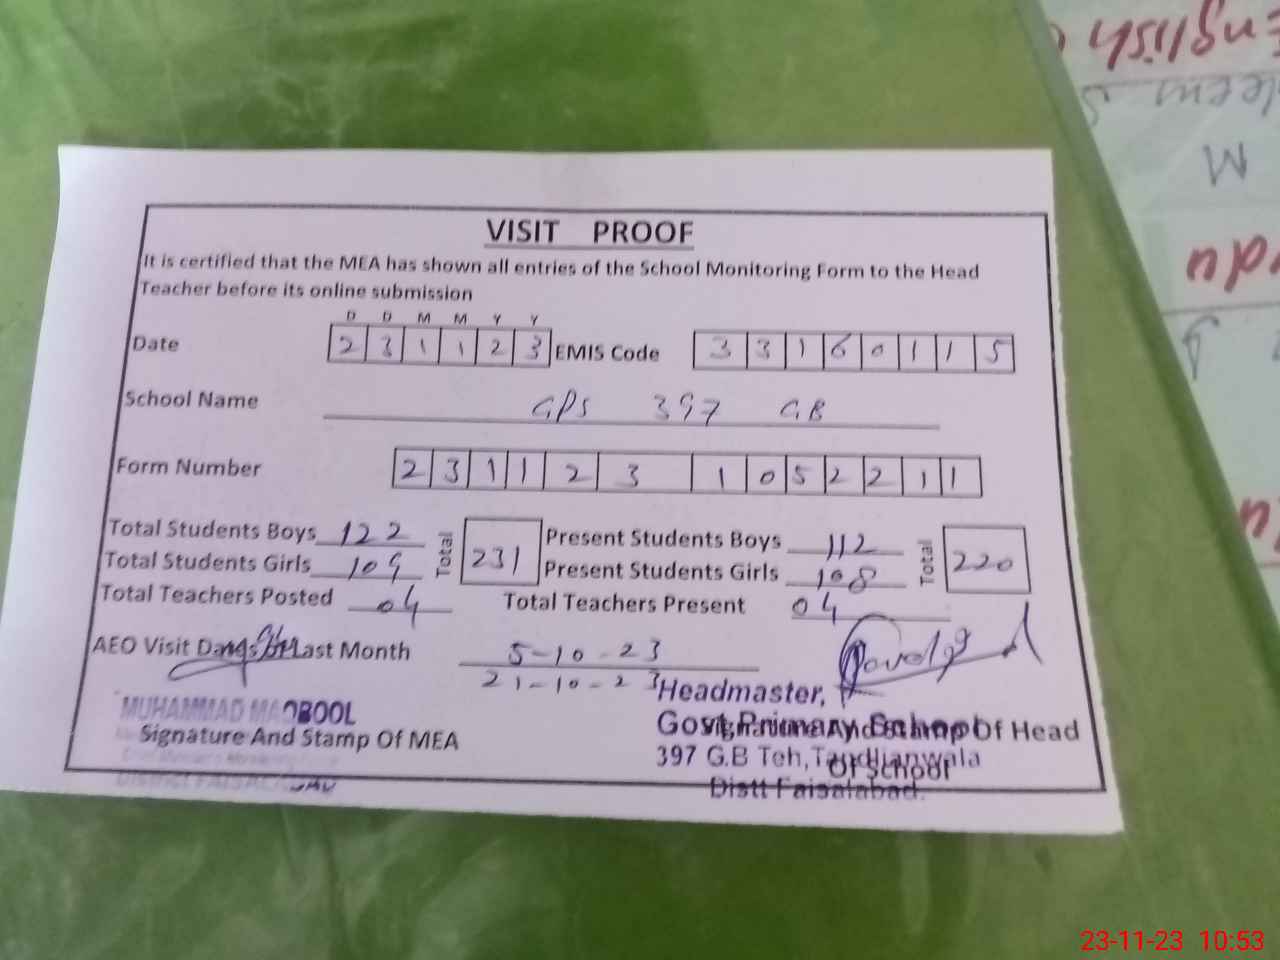 VISIT PROOF
It is certified that the MEA has shown all entries of the School Monitoring Form to the Head
Teacher before its online submission
D D M M Y Y
Date 2 3 1 1 2 3 EMIS Code 3 3 1 6 0 1 1 5
School Name GPS 397 GB
Form Number 2 3 1 1 2 3 1 0 5 2 2 1 1
Total Students Boys 122 Total 231 Present Students Boys 112 Total 220
Total Students Girls 109 Present Students Girls 108
Total Teachers Posted 04 Total Teachers Present 04
AEO Visit Dates In Last Month 5-10-23
21-10-23
Headmaster,
MUHAMMAD MAQBOOL
Govt Primary School
Signature And Stamp Of MEA
Signature And Stamp Of Head
397 G.B Teh, Tandlianwala
Of School
DISTRICT FAISALABAD
Distt Faisalabad.
English
M
23-11-23 10:53